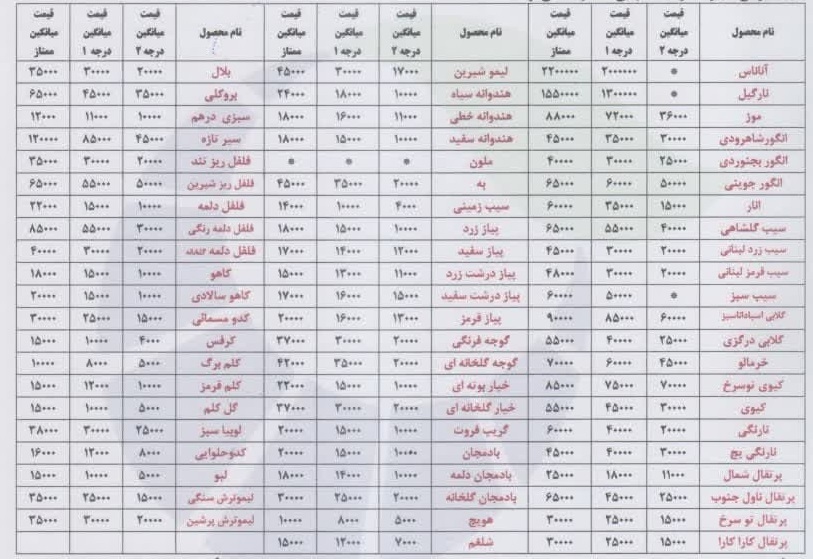 نام محصول قیمت میانگین درجه ۲ قیمت میانگین درجه ۱ قیمت میانگین ممتاز نام محصول قیمت میانگین درجه ۲ قیمت میانگین درجه ۱ قیمت میانگین ممتاز نام محصول قیمت میانگین درجه ۲ قیمت میانگین درجه ۱ قیمت میانگین ممتاز
آناناس * ۲۰۰۰۰۰۰ ۲۲۰۰۰۰۰ لیمو شیرین ۱۷۰۰۰ ۳۰۰۰۰ ۴۵۰۰۰ بلال ۲۰۰۰۰ ۳۰۰۰۰ ۳۵۰۰۰
نارگیل * ۱۳۰۰۰۰۰ ۱۵۵۰۰۰۰ هندوانه سیاه ۱۰۰۰۰ ۱۸۰۰۰ ۲۴۰۰۰ بروکلی ۳۵۰۰۰ ۴۵۰۰۰ ۶۵۰۰۰
موز ۳۶۰۰۰ ۷۲۰۰۰ ۸۸۰۰۰ هندوانه خطی ۱۱۰۰۰ ۱۶۰۰۰ ۱۸۰۰۰ سبزی درهم ۱۰۰۰۰ ۱۱۰۰۰ ۱۲۰۰۰
انگورشاهرودی ۳۰۰۰۰ ۳۵۰۰۰ ۴۵۰۰۰ هندوانه سفید ۱۰۰۰۰ ۱۵۰۰۰ ۱۸۰۰۰ سیر تازه ۴۵۰۰۰ ۸۵۰۰۰ ۱۲۰۰۰۰
انگور بجنوردی ۲۵۰۰۰ ۳۰۰۰۰ ۴۰۰۰۰ ملون * * * فلفل ریز تند ۲۰۰۰۰ ۳۰۰۰۰ ۳۵۰۰۰
انگور جوینی ۵۰۰۰۰ ۶۰۰۰۰ ۶۵۰۰۰ به ۲۰۰۰۰ ۳۵۰۰۰ ۴۵۰۰۰ فلفل ریز شیرین ۵۰۰۰۰ ۵۵۰۰۰ ۶۵۰۰۰
انار ۱۵۰۰۰ ۳۵۰۰۰ ۶۰۰۰۰ سیب زمینی ۴۰۰۰ ۱۰۰۰۰ ۱۴۰۰۰ فلفل دلمه ۱۰۰۰۰ ۱۵۰۰۰ ۲۲۰۰۰
سیب گلشاهی ۴۰۰۰۰ ۵۵۰۰۰ ۶۵۰۰۰ پیاز زرد ۱۰۰۰۰ ۱۵۰۰۰ ۱۸۰۰۰ فلفل دلمه رنگی ۳۰۰۰۰ ۵۵۰۰۰ ۸۵۰۰۰
سیب زرد لبنانی ۲۰۰۰۰ ۳۰۰۰۰ ۴۵۰۰۰ پیاز سفید ۱۲۰۰۰ ۱۴۰۰۰ ۱۷۰۰۰ فلفل دلمه ۲۰۰۰۰ ۳۰۰۰۰ ۴۰۰۰۰
سیب قرمز لبنانی ۲۰۰۰۰ ۳۰۰۰۰ ۴۸۰۰۰ پیاز درشت زرد ۱۱۰۰۰ ۱۳۰۰۰ ۱۵۰۰۰ کاهو ۱۰۰۰۰ ۱۵۰۰۰ ۱۸۰۰۰
سیب سبز * ۵۰۰۰۰ ۶۰۰۰۰ پیاز درشت سفید ۱۵۰۰۰ ۱۶۰۰۰ ۱۷۰۰۰ کاهو سالادی ۱۰۰۰۰ ۱۵۰۰۰ ۲۰۰۰۰
گلابی اسپاداناسبز ۶۰۰۰۰ ۸۵۰۰۰ ۹۰۰۰۰ پیاز قرمز ۱۳۰۰۰ ۱۶۰۰۰ ۲۰۰۰۰ کدو مسمائی ۱۵۰۰۰ ۲۵۰۰۰ ۳۰۰۰۰
گلابی درگزی ۲۵۰۰۰ ۴۰۰۰۰ ۵۵۰۰۰ گوجه فرنگی ۲۰۰۰۰ ۳۰۰۰۰ ۳۷۰۰۰ کرفس ۴۰۰۰ ۱۰۰۰۰ ۱۵۰۰۰
خرمالو ۴۵۰۰۰ ۶۰۰۰۰ ۷۰۰۰۰ گوجه گلخانه ای ۲۰۰۰۰ ۳۵۰۰۰ ۴۲۰۰۰ کلم برگ ۵۰۰۰ ۸۰۰۰ ۱۰۰۰۰
کیوی توسرخ ۷۰۰۰۰ ۷۵۰۰۰ ۸۵۰۰۰ خیار بوته ای ۱۰۰۰۰ ۱۵۰۰۰ ۲۲۰۰۰ کلم قرمز ۱۰۰۰۰ ۱۲۰۰۰ ۱۵۰۰۰
کیوی ۳۰۰۰۰ ۴۵۰۰۰ ۵۵۰۰۰ خیار گلخانه ای ۲۰۰۰۰ ۳۰۰۰۰ ۳۷۰۰۰ گل کلم ۵۰۰۰ ۱۰۰۰۰ ۱۵۰۰۰
نارنگی ۲۰۰۰۰ ۴۰۰۰۰ ۶۰۰۰۰ گریپ فروت ۱۰۰۰۰ ۱۵۰۰۰ ۲۰۰۰۰ لوبیا سبز ۲۵۰۰۰ ۳۰۰۰۰ ۳۸۰۰۰
نارنگی پیج ۳۰۰۰۰ ۴۰۰۰۰ ۴۵۰۰۰ بادمجان ۱۰۰۰۰ ۱۵۰۰۰ ۲۰۰۰۰ کدوحلوایی ۸۰۰۰ ۱۲۰۰۰ ۱۶۰۰۰
پرتقال شمال ۱۱۰۰۰ ۱۸۰۰۰ ۲۵۰۰۰ بادمجان دلمه ۱۰۰۰۰ ۱۴۰۰۰ ۱۸۰۰۰ لبو ۵۰۰۰ ۱۰۰۰۰ ۱۵۰۰۰
پرتقال ناول جنوب ۲۵۰۰۰ ۴۵۰۰۰ ۶۵۰۰۰ بادمجان گلخانه ۲۰۰۰۰ ۲۵۰۰۰ ۳۰۰۰۰ لیموترش سنگی ۱۵۰۰۰ ۲۵۰۰۰ ۳۵۰۰۰
پرتقال تو سرخ ۱۵۰۰۰ ۲۵۰۰۰ ۳۰۰۰۰ هویج ۵۰۰۰ ۸۰۰۰ ۱۰۰۰۰ لیموترش پرشین ۲۰۰۰۰ ۳۰۰۰۰ ۳۵۰۰۰
پرتقال کارا کارا ۱۵۰۰۰ ۲۵۰۰۰ ۳۰۰۰۰ شلغم ۷۰۰۰ ۱۲۰۰۰ ۱۵۰۰۰